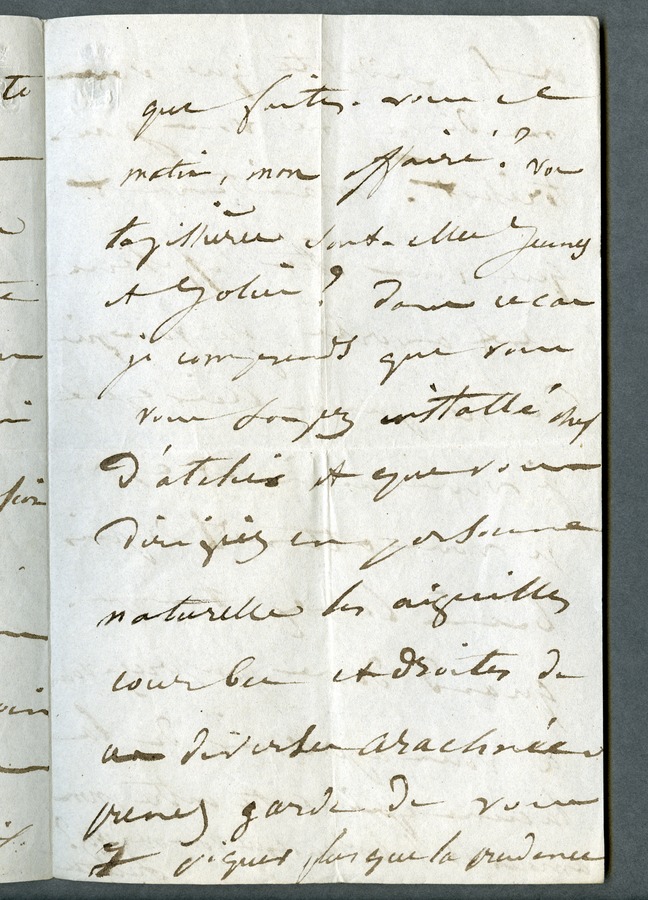 que faites-vous ce
matin, mon affairé? vos
tapissières sont-elles jeunes
et jolies? dans ce cas
je comprends que vous
vous soyez installé chef
d'atelier et que vous
dirigiez en personne
naturelle les aiguilles
courbes et droites de
ces diverses arachnées
prenez garde de vous
y piquer plus que la prudence